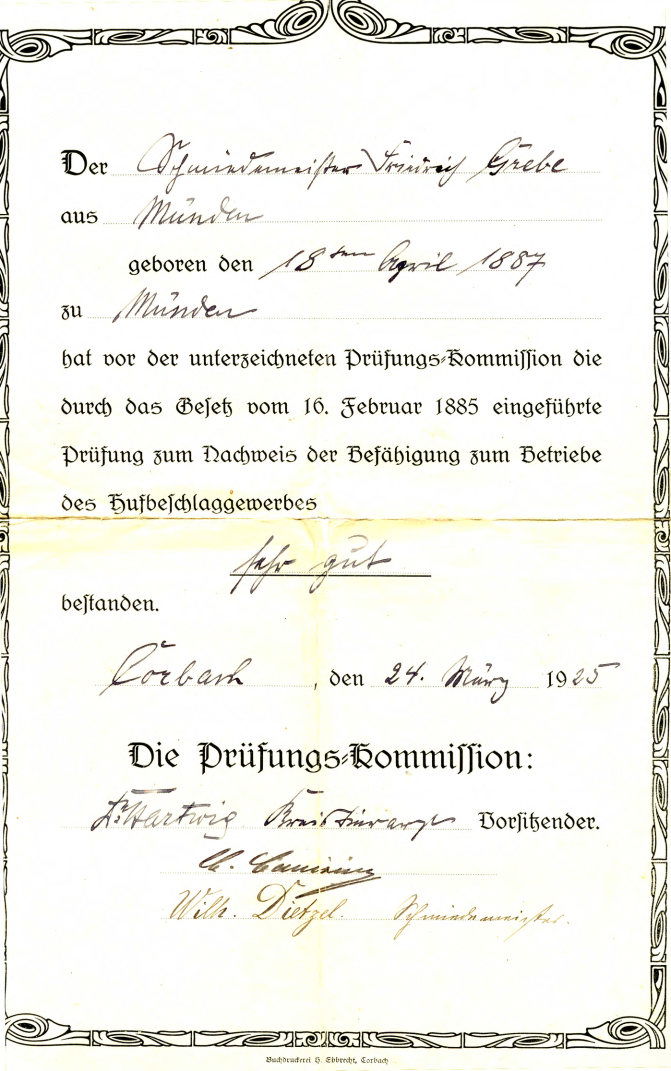 Der Schmiedemeister Friedrich Grebe
aus Münden
geboren den 18ten April 1887
zu Münden
hat vor der unterzeichneten Prüfungs-Kommission die
durch das Gesetz vom 16. Februar 1885 eingeführte
Prüfung zum Nachweis der Befähigung zum Betriebe
des Hufbeschlaggewerbes
sehr gut
bestanden.
Corbach, den 24. März 1925
Die Prüfungs-Kommission:
Dr. Hartwig Kreistierarzt Vorsitzender.
Wilh. Dietzel. Schmiedemeister.
Buchdruckerei H. Ebbrecht, Corbach